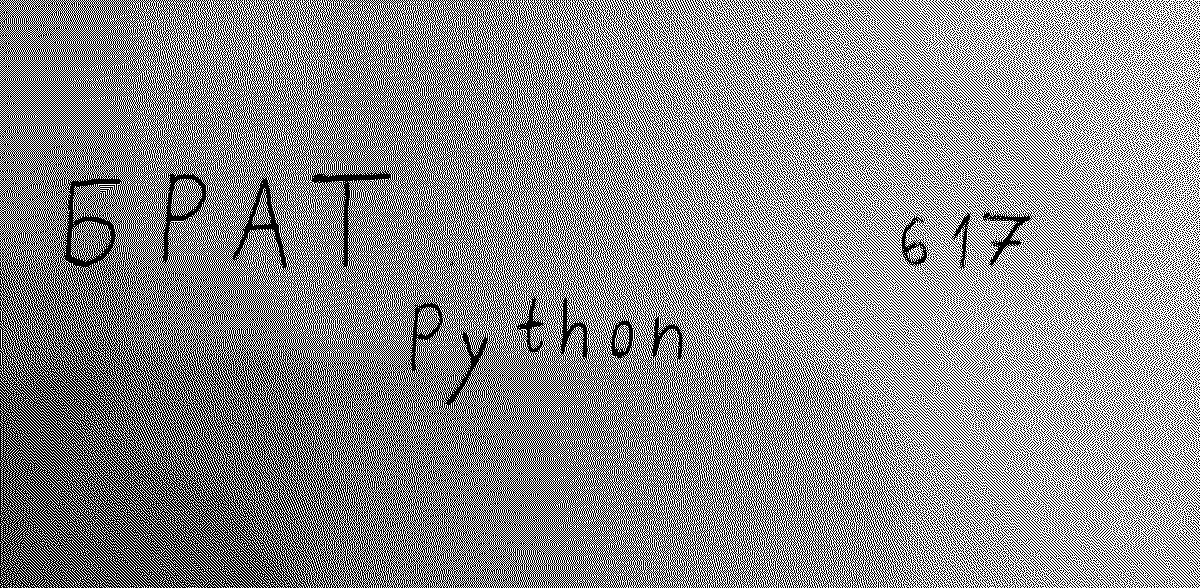 БРАТ
617
Python